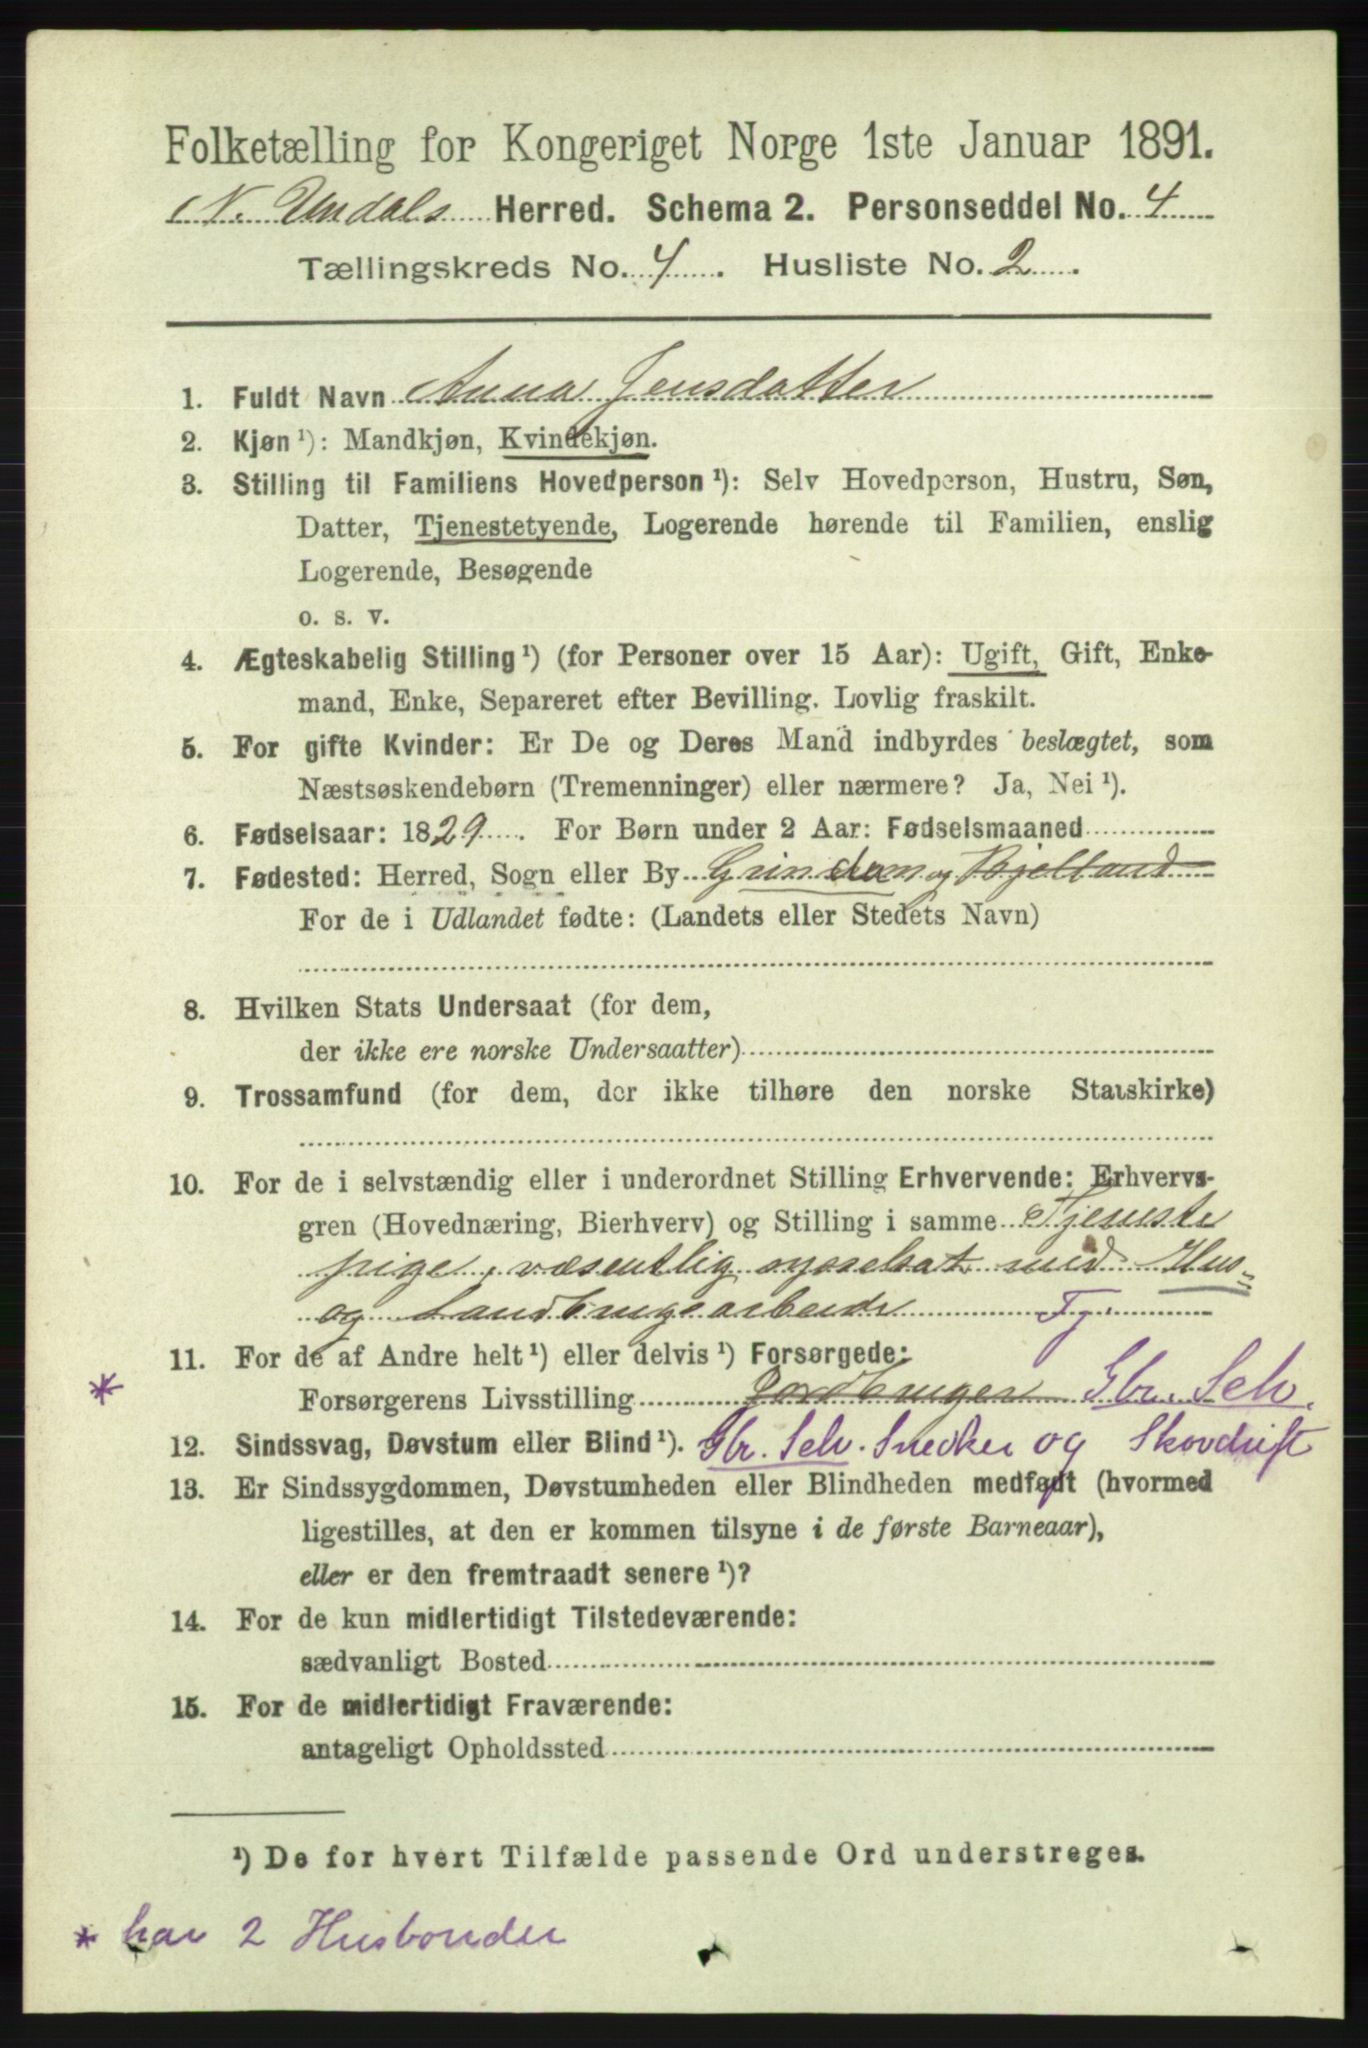 Folketælling for Kongeriget Norge 1ste Januar 1891.
N. Undals Herred. Schema 2. Personseddel No. 4
Tællingskreds No. 4. Husliste No. 2.
1. Fuldt Navn Anna Jensdatter
2. Kjøn ¹): Mandkjøn, Kvindekjøn.
3. Stilling til Familiens Hovedperson ¹): Selv Hovedperson, Hustru, Søn,
Datter, Tjenestetyende, Logerende hørende til Familien, enslig
Logerende, Besøgende
o. s. v.
4. Ægteskabelig Stilling ¹) (for Personer over 15 Aar): Ugift, Gift, Enke-
mand, Enke, Separeret efter Bevilling. Lovlig fraskilt.
5. For gifte Kvinder: Er De og Deres Mand indbyrdes beslægtet, som
Næstsøskendebørn (Tremenninger) eller nærmere? Ja, Nei ¹).
6. Fødselsaar: 1829. For Børn under 2 Aar: Fødselsmaaned
7. Fødested: Herred, Sogn eller By Grindum og Bjelland
For de i Udlandet fødte: (Landets eller Stedets Navn)
8. Hvilken Stats Undersaat (for dem,
der ikke ere norske Undersaatter)
9. Trossamfund (for dem, der ikke tilhøre den norske Statskirke)
10. For de i selvstændig eller i underordnet Stilling Erhvervende: Erhvervs-
gren (Hovednæring, Bierhverv) og Stilling i samme Tjeneste
pige, væsentlig sysselsat med Hus-
og Landbrugsarbeide Tj.
11. For de af Andre helt ¹) eller delvis ¹) Forsørgede:
* Forsørgerens Livsstilling Jordbruger Gbr. Selv.
12. Sindssvag, Døvstum eller Blind ¹). Gbr. Selv. Snedker og Skovdrift
13. Er Sindssygdommen, Døvstumheden eller Blindheden medfødt (hvormed
ligestilles, at den er kommen tilsyne i de første Barneaar),
eller er den fremtraadt senere ¹)?
14. For de kun midlertidigt Tilstedeværende:
sædvanligt Bosted
15. For de midlertidigt Fraværende:
antageligt Opholdssted
¹) De for hvert Tilfælde passende Ord understreges.
* har 2 Husbonder